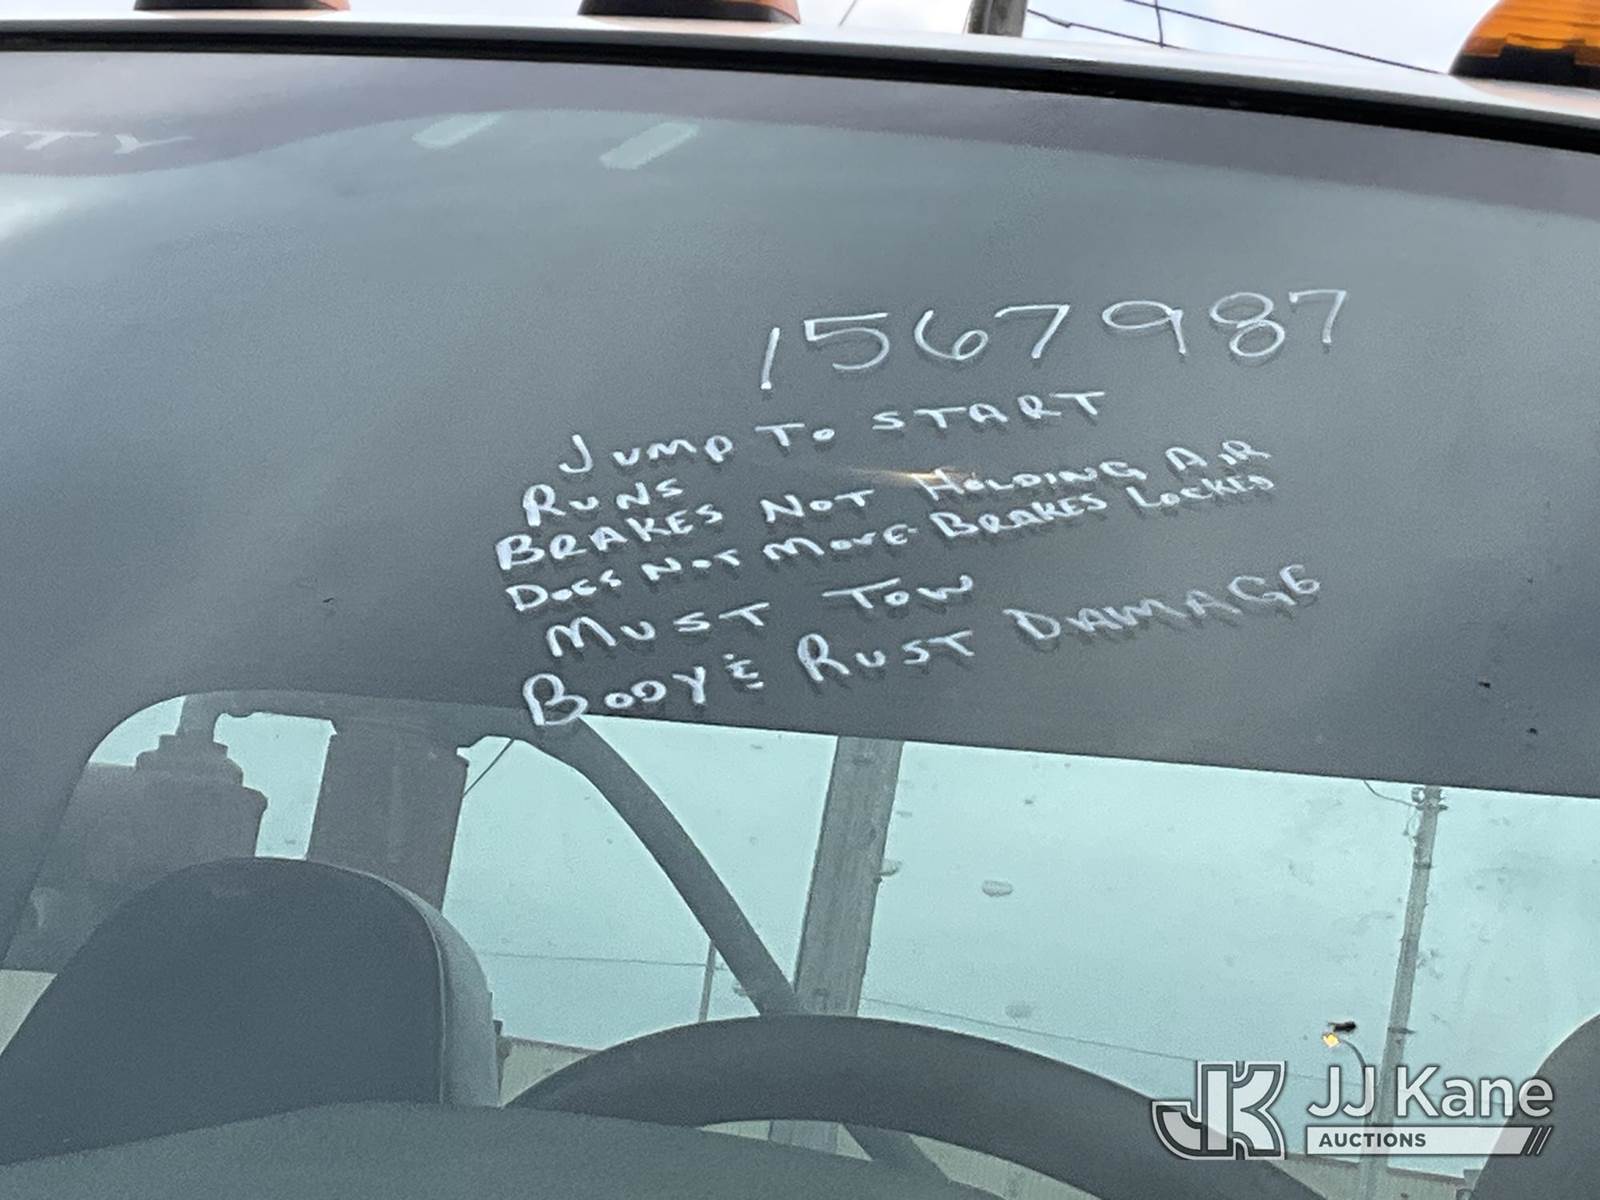 ITY
1567987
JUMP TO START
RUNS
BRAKES NOT HOLDING AIR
DOES NOT MOVE-BRAKES LOCKED
MUST TOW
BODY & RUST DAMAGE
JK JJ Kane
AUCTIONS